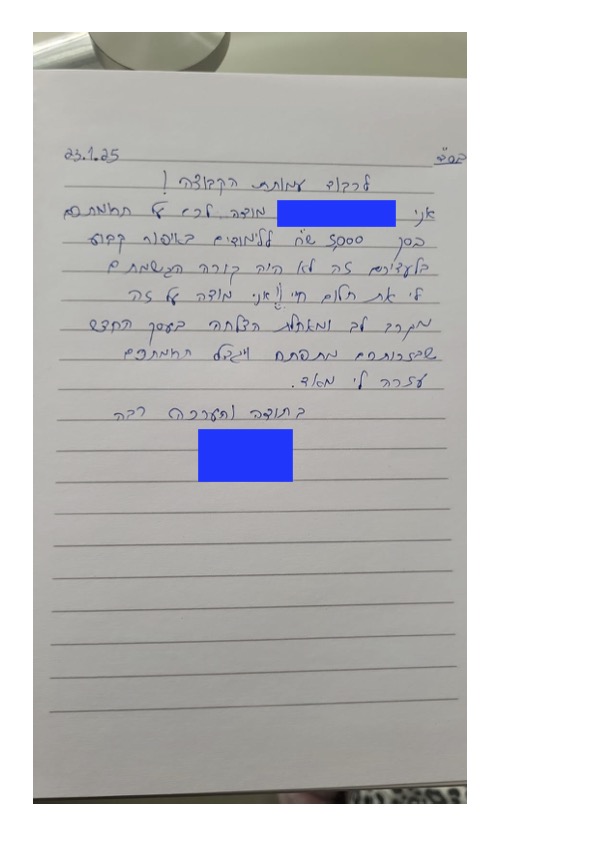 בס"ד
23.1.25
לכבוד עמותת הקבוצה!
אני מודה לכם על תרומתכם
בסך 5,000 ש"ח ללימודים באיפור קבוע
בלעדיכם זה לא היה קורה הגשמתם
לי את חלום חיי!! אני מודה על זה
מקרב לב ומאחלת הצלחה בעסק החדש
שבזכותכם מתפתח תרומתכם
עזרה לי מאוד.
בתודה והערכה רבה